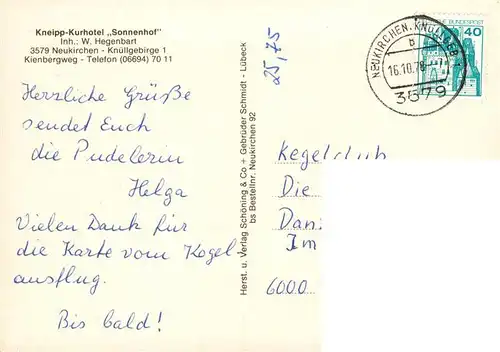 Kneipp-Kurhotel „Sonnenhof"
Inh.: W. Hegenbart
3579 Neukirchen - Knüllgebirge 1
Kienbergweg - Telefon (06694) 70 11
Herzliche Grüße
sendet Euch
die Pudelerin
Helga
Vielen Dank für
die Karte vom Kogel
ausflug.
Bis bald!
Herst. u. Verlag Schöning & Co + Gebrüder Schmidt - Lübeck
bs Bestellnr. Neukirchen 92
25,75
NEUKIRCHEN, KNÜLLGEB
B
16.10.78
3579
BUNDESPOST
40
Kegelclub
Die
Dan
Im
6000